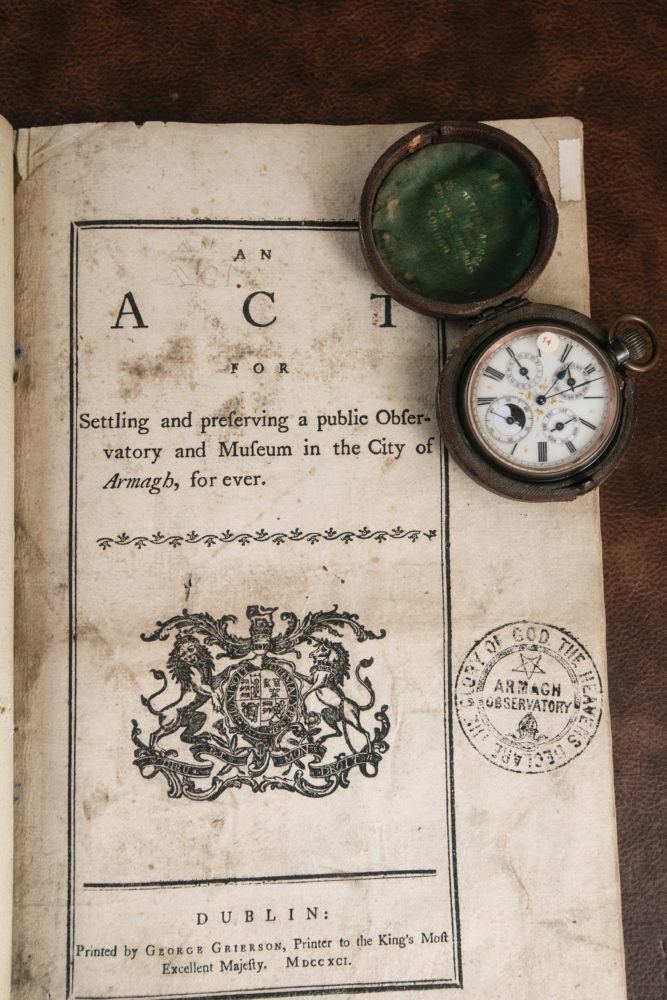 AN
ACT
FOR
Settling and preſerving a public Obſer-
vatory and Muſeum in the City of
Armagh, for ever.
DIEU ET MON DROIT
DUBLIN:
Printed by GEORGE GRIERSON, Printer to the King's Moſt
Excellent Majeſty. MDCCXCI.
LONDON
14
THE GLORY OF GOD THE HEAVENS DECLARE
ARMAGH
OBSERVATORY